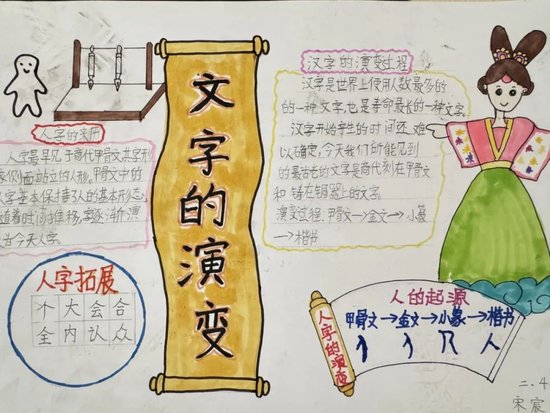 文字的演变
人字的来历
人字最早见于商代甲骨文,其字形
像侧面站立的人形,甲骨文中的
人字基本保持了人的基本形态,
随着时间推移,字逐渐演
为今天人字。
人字拓展
个大会合
全内认众
汉字的演变过程
汉字是世界上使用人数最多的
的一种文字,也是寿命最长的一种文字。
汉字开始产生的时间还难
以确定,今天我们所能见到
的最古老的文字是商代刻在甲骨
和铸在铜器上的文字。
演变过程:甲骨文→金文→小篆
→楷书
人的起源
甲骨文→金文→小篆→楷书
人
人字的演变
二.4
宋宸